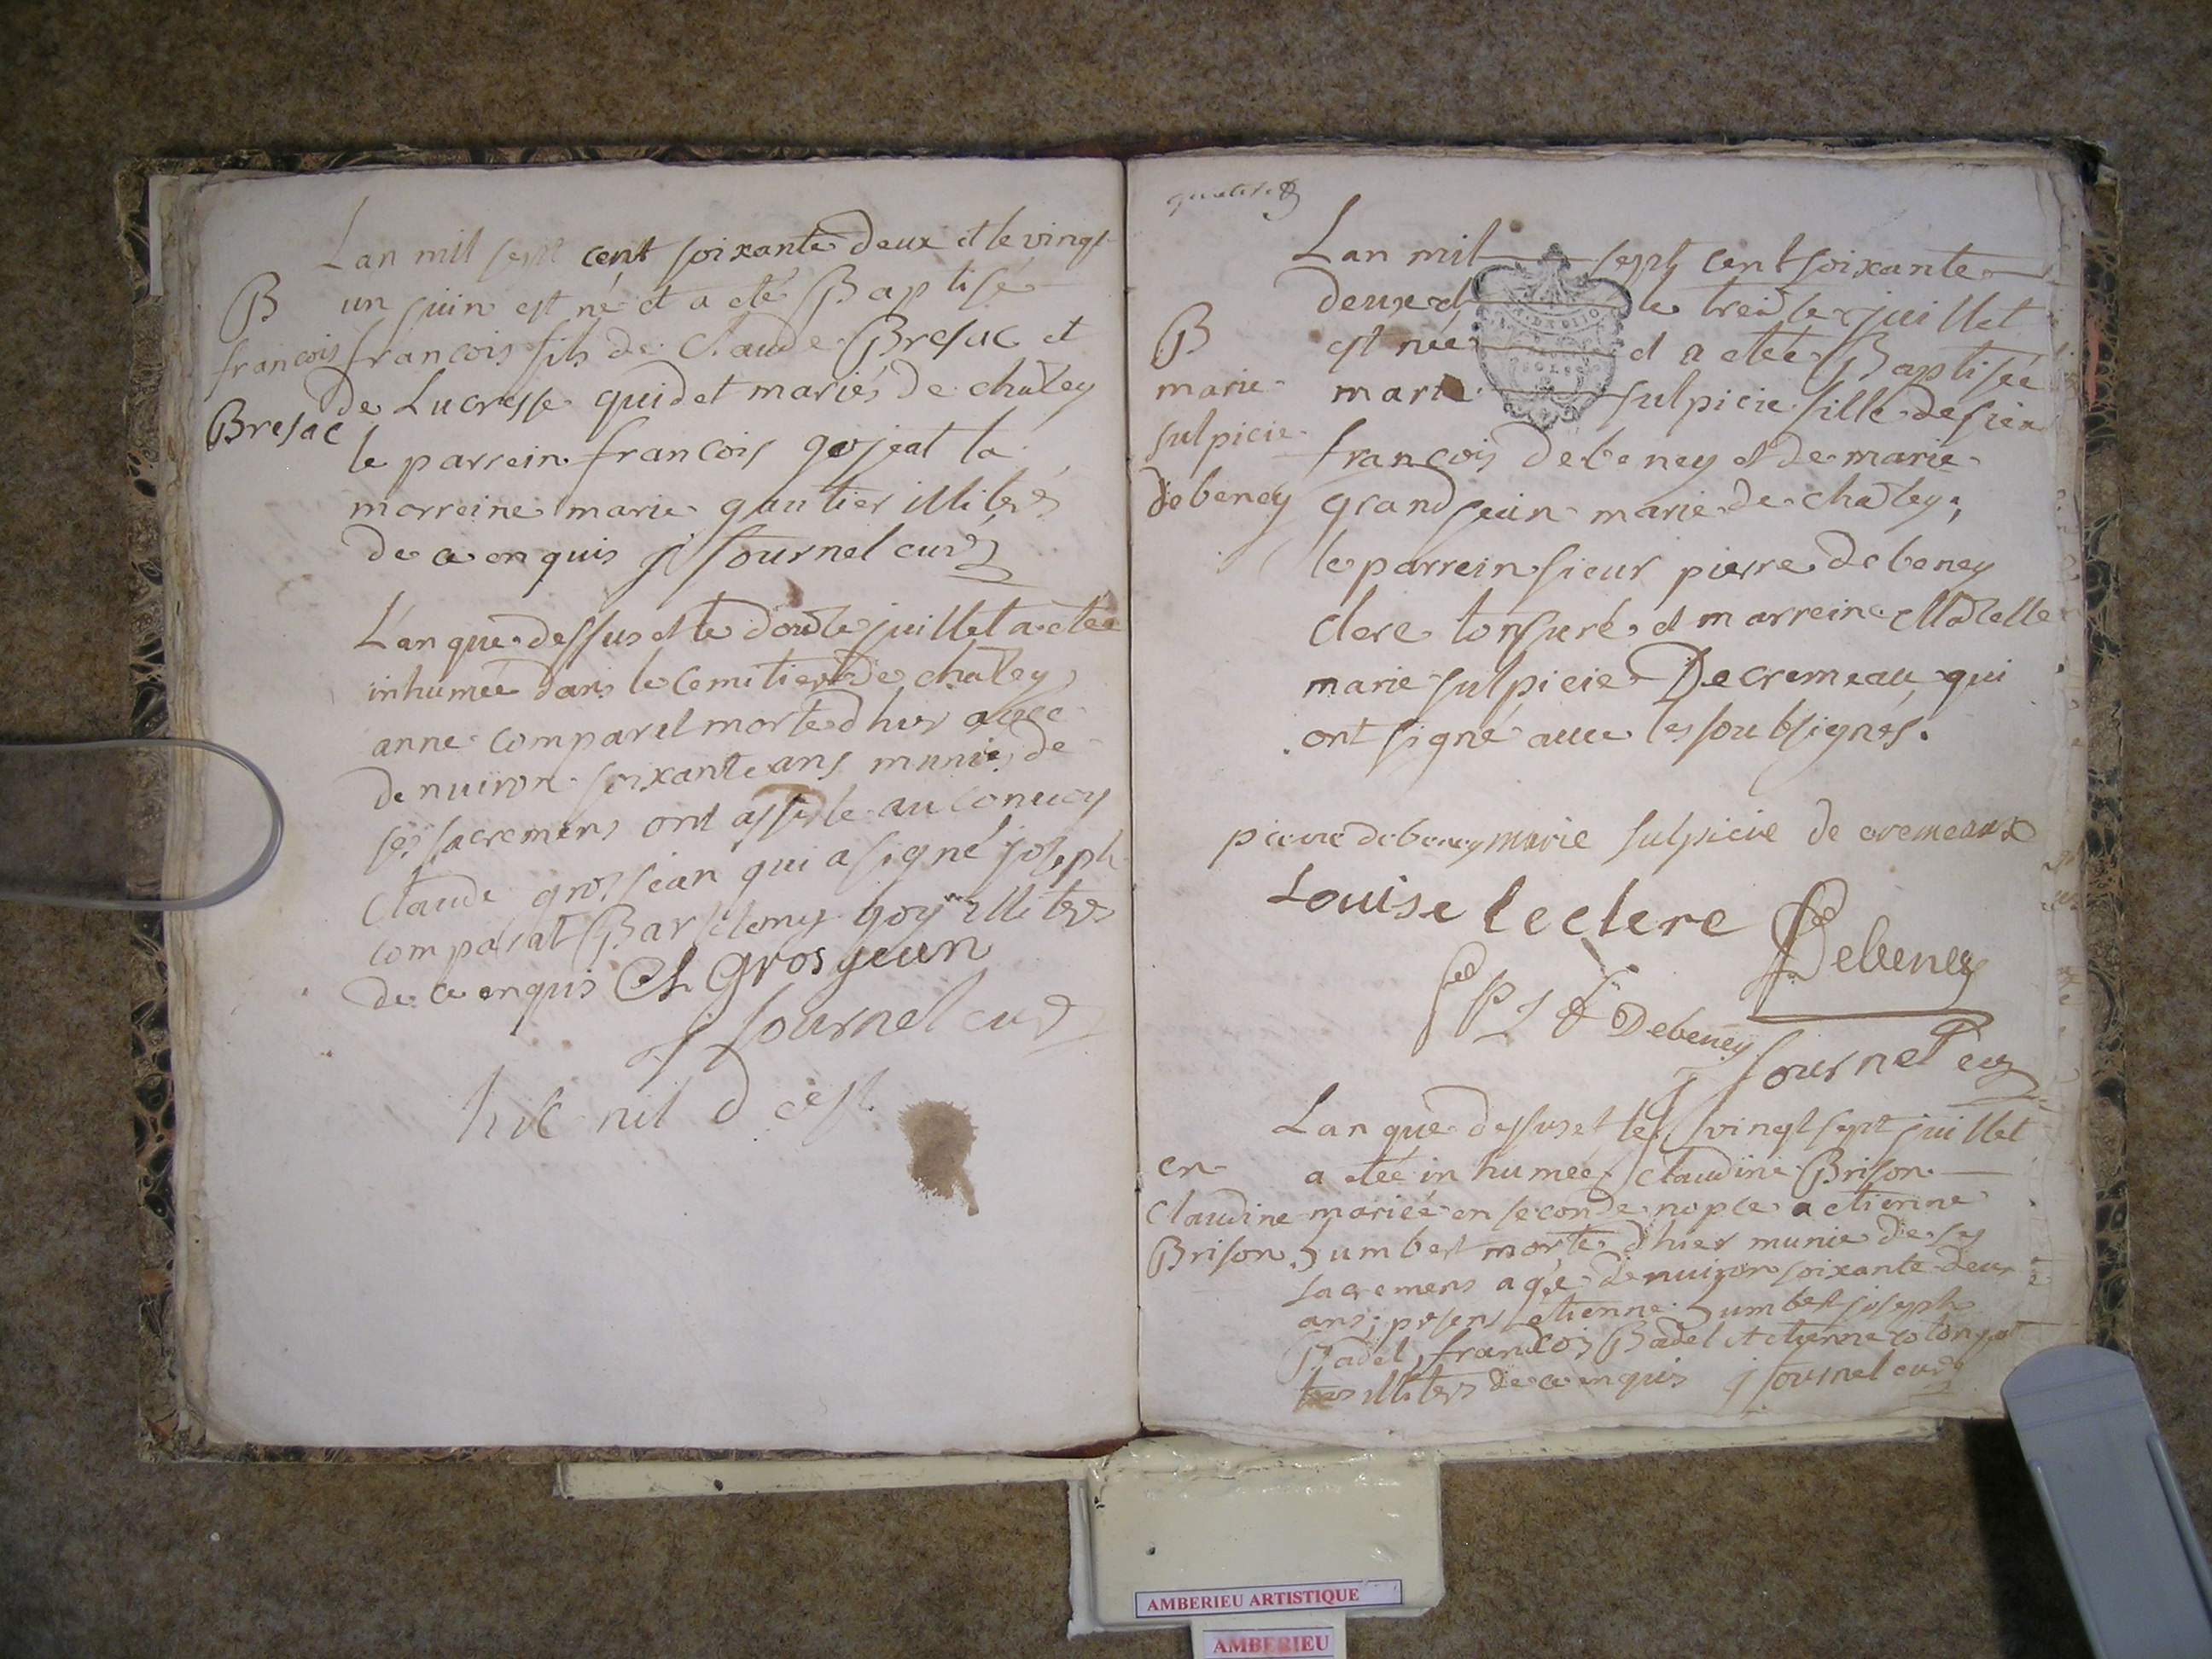 Lan mil sept cent soixante deux et le vingt
B
un juin est né et a eté Baptisé
francois
francois fils de Claude Bresac et
de Lucresse quidet mariés de chaley
Bresac
le parrein francois gojeat la
marreine marie gautier illiterés
de ce enquis j fournel curé
Lan que dessus et le douze juillet a etée
inhumée dans le Cemitier de chaley
anne comparet morte dhier agee
denuiron soixante ans munie de
ses sacremens ont assisté au conuoy
Claude grosjean qui a signé joseph
comparat Barthelemy goy illiterés
de ce enquis Cl Grosjean
j fournel curé
hic nil dest
quatre
Lan mil sept cent soixante
deux et le treize juillet
B
est née et a etée Baptisée
marie
marie sulpicie fille de sieur
sulpicie
francois debeney et de marie
debeney
grand jean marie de chaley,
le parrein sieur pierre debeney
clerc tonsuré et marreine Madelle
marie sulpicie Decremeau qui
ont signé auec les soubsignés.
pierre debeney marie sulpicie de cremeaux
Louise leclerc
Debeney
Debeney
j fournel curé
Lan que dessus et le vingt sept juillet
en
a etée inhumée claudine Brison
Claudine
mariée en seconde nopce a etienne
Brison
humbert morte dhier munie de ses
sacremens agée denuiron soixante deux
ans, presens etienne humbert joseph
Badel, francois Badel et etienne
tous illiterés de ce enquis j fournel curé
AMBERIEU ARTISTIQUE
AMBERIEU